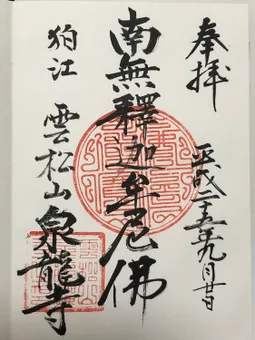 奉拝
平成二五年九月廿日
南無釋迦牟尼佛
狛江 雲松山 泉龍寺